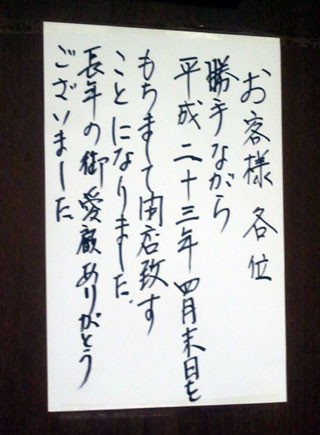 お客様 各位
勝手ながら
平成二十三年 四月末日を
もちまして閉店致す
ことになりました。
長年の御愛顧ありがとう
ございました